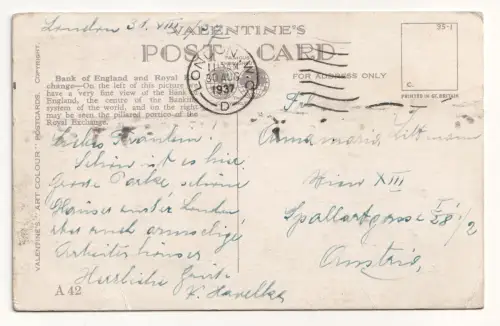 VALENTINE'S
POST CARD
London 31. VIII
LONDON
30 AUG
1937
D
Bank of England and Royal Ex-
change—On the left of this picture
have a very fine view of the Bank
England, the centre of the Banking
system of the world, and on the right
may be seen the pillared portico of the
Royal Exchange.
FOR ADDRESS ONLY
33-1
C.
PRINTED IN GT. BRITAIN
VALENTINE'S "ART COLOUR" POSTCARDS. COPYRIGHT.
Liebes Fräulein!
Schön ist es hier.
Grosse Parke, schöne
Häuser
aber auch armselige
Arbeiterhäuser
Herzliche Grüße
K. Havelka
A 42
Annamaria Littmann
Wien XIII
Spallartgasse 28/2
Austria